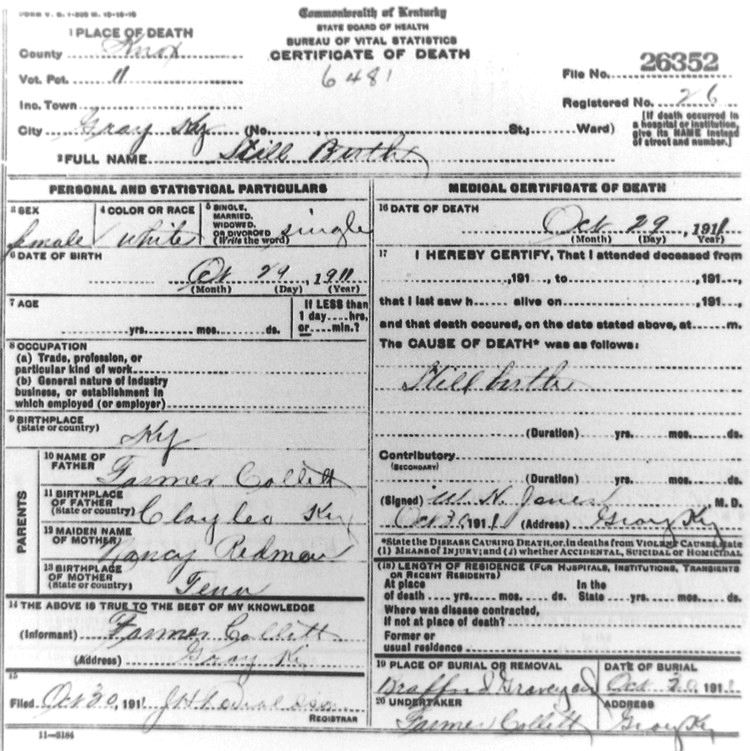 FORM V. S. 1-
Commonwealth of Kentucky
STATE BOARD OF HEALTH
BUREAU OF VITAL STATISTICS
CERTIFICATE OF DEATH
6481
1 PLACE OF DEATH
County Knox
Vot. Pct. 11
Inc. Town
City Gray Ky (No. , St.; Ward)
File No. 26352
Registered No. 26
[If death occurred in
a hospital or institution,
give its NAME instead
of street and number.]
2 FULL NAME Still Birth
PERSONAL AND STATISTICAL PARTICULARS
3 SEX female
4 COLOR OR RACE white
5 SINGLE,
MARRIED,
WIDOWED,
OR DIVORCED
(Write the word) single
6 DATE OF BIRTH
Oct 29, 1911
(Month) (Day) (Year)
7 AGE
yrs. mos. ds.
If LESS than
1 day....hrs,
or....min.?
8 OCCUPATION
(a) Trade, profession, or
particular kind of work
(b) General nature of industry
business, or establishment in
which employed (or employer)
9 BIRTHPLACE
(State or country)
Ky
PARENTS
10 NAME OF
FATHER Farmer Collett
11 BIRTHPLACE
OF FATHER
(State or country) Clay Co Ky
12 MAIDEN NAME
OF MOTHER Nancy
13 BIRTHPLACE
OF MOTHER
(State or country) Tenn
14 THE ABOVE IS TRUE TO THE BEST OF MY KNOWLEDGE
(Informant) Farmer Collett
(Address) Gray Ky
15
Filed Oct 30, 1911
REGISTRAR
11—5184
MEDICAL CERTIFICATE OF DEATH
16 DATE OF DEATH
Oct 29, 1911
(Month) (Day) Year)
17 I HEREBY CERTIFY, That I attended deceased from
,191 , to ,191 ,
that I last saw h alive on ,191 ,
and that death occured, on the date stated above, at m.
The CAUSE OF DEATH* was as follows:
Still birth
(Duration) yrs. mos. ds.
Contributory
(SECONDARY)
(Duration) yrs. mos. ds.
(Signed) W. H. Jones M. D.
Oct 30 1911 (Address) Gray Ky
*State the DISEASE CAUSING DEATH, or, in deaths from VIOLENT CAUSES, state
(1) MEANS OF INJURY; and (2) whether ACCIDENTAL, SUICIDAL OR HOMICIDAL
(18) LENGTH OF RESIDENCE (FOR HOSPITALS, INSTITUTIONS, TRANSIENTS
OR RECENT RESIDENTS)
At place In the
of death yrs. mos. ds. State yrs. mos. ds.
Where was disease contracted,
if not at place of death?
Former or
usual residence
19 PLACE OF BURIAL OR REMOVAL
Graveyard
DATE OF BURIAL
Oct 30, 1911
20 UNDERTAKER
Farmer Collett
ADDRESS
Gray Ky